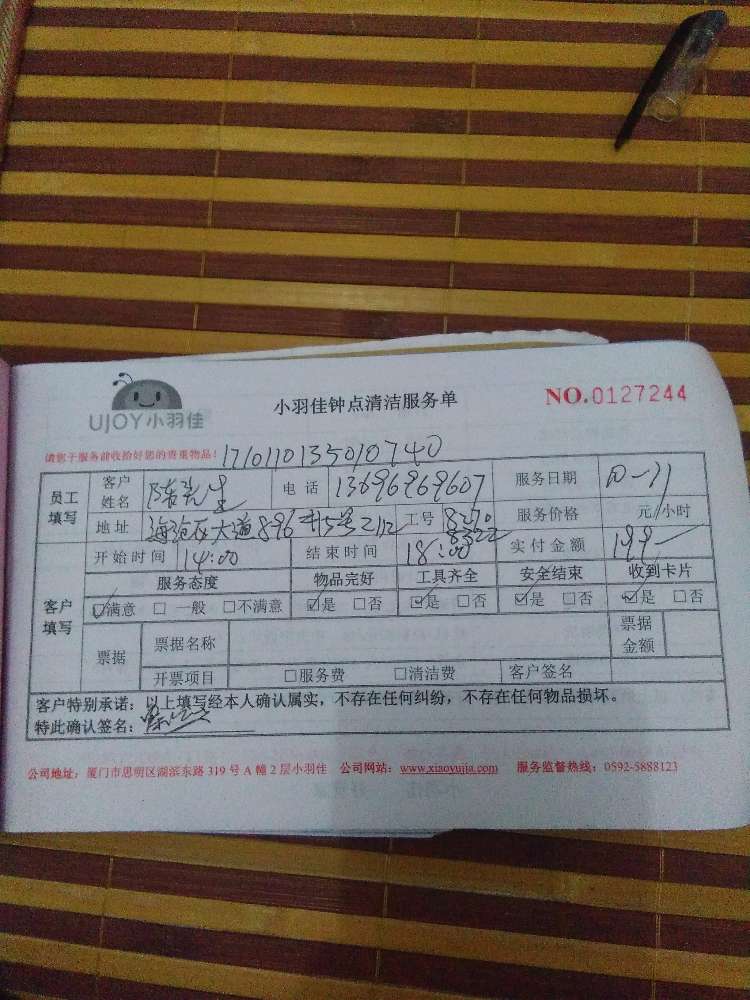 UJOY小羽佳
小羽佳钟点清洁服务单
NO.0127244
请您于服务前收拾好您的贵重物品!
171011013501 0740
员工填写 客户姓名 陈先生 电话 13696969607 服务日期
地址 海沧区大道896 #5号 工号 8270 8322 服务价格 元/小时
开始时间 14:00 结束时间 18:00 实付金额 199
客户填写 服务态度 物品完好 工具齐全 安全结束 收到卡片
☑满意 □一般 □不满意 ☑是 □否 ☑是 □否 ☑是 □否 ☑是 □否
票据 票据名称 票据金额
开票项目 □服务费 □清洁费 客户签名
客户特别承诺:以上填写经本人确认属实,不存在任何纠纷,不存在任何物品损坏。
特此确认签名:
公司地址:厦门市思明区湖滨东路 319 号 A 幢 2 层小羽佳 公司网站:www.xiaoyujia.com 服务监督热线:0592-5888123